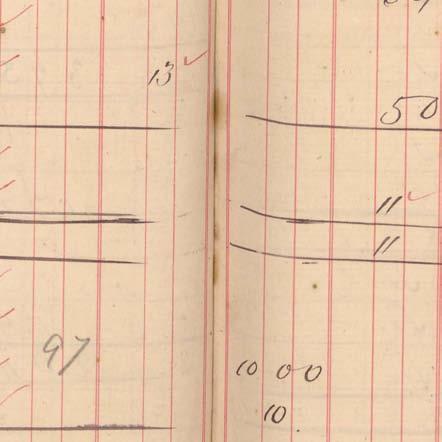 13
97
50
11
11
10 00
10